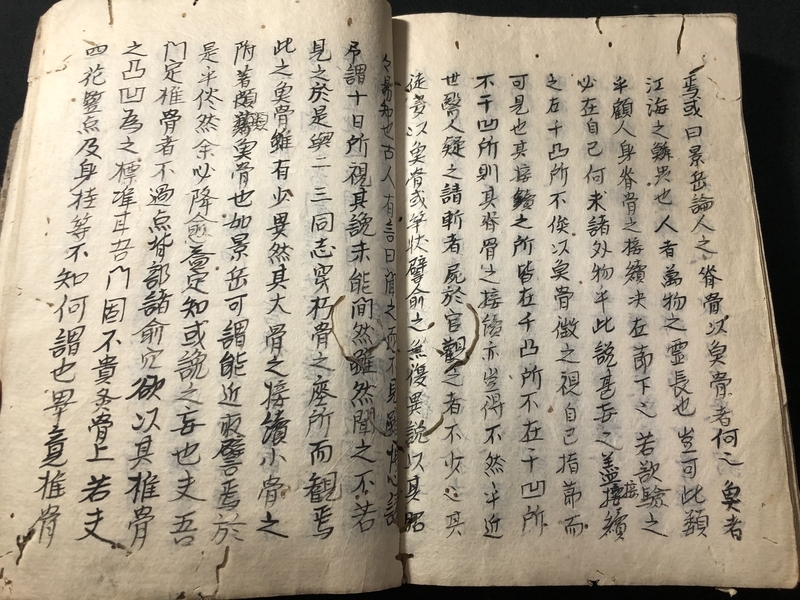 焉或曰景岳論人之脊骨以魚骨者何之魚者
江海之鱗虫也人者萬物之霊長也豈可此類
乎顧人身脊骨之接續决在節下之若欲驗之
必在自己何求諸外物乎此説甚妄之蓋接續
之在于凸所不俟以魚骨徴之視自己指節而
可見也其接續之所皆在于凸所不在于凹所
不于凹所則其脊骨之接續亦豈得不然乎近
世醫人疑之請斬者屍於官觀之者不少之其
徒多以魚脊或竿状譬俞之無復異説以其昭
々易知也古人有言曰聞之而不見雖
吊謂十日所視其説未能間然雖然聞之不若
見之於是與二三同志穿朽骨之座所而観焉
此之魚骨雖有少異然其大骨之接續小骨之
附著頗類魚骨也如景岳可謂能近取譬焉於
是乎恍然余必降愈益定知或説之妄也夫吾
門定椎骨者不過点背部諸俞穴欲以其椎骨
之凸凹為之標準耳吾門固不貴灸骨上若夫
四花鑿点及身柱等不知何謂也畢竟椎骨